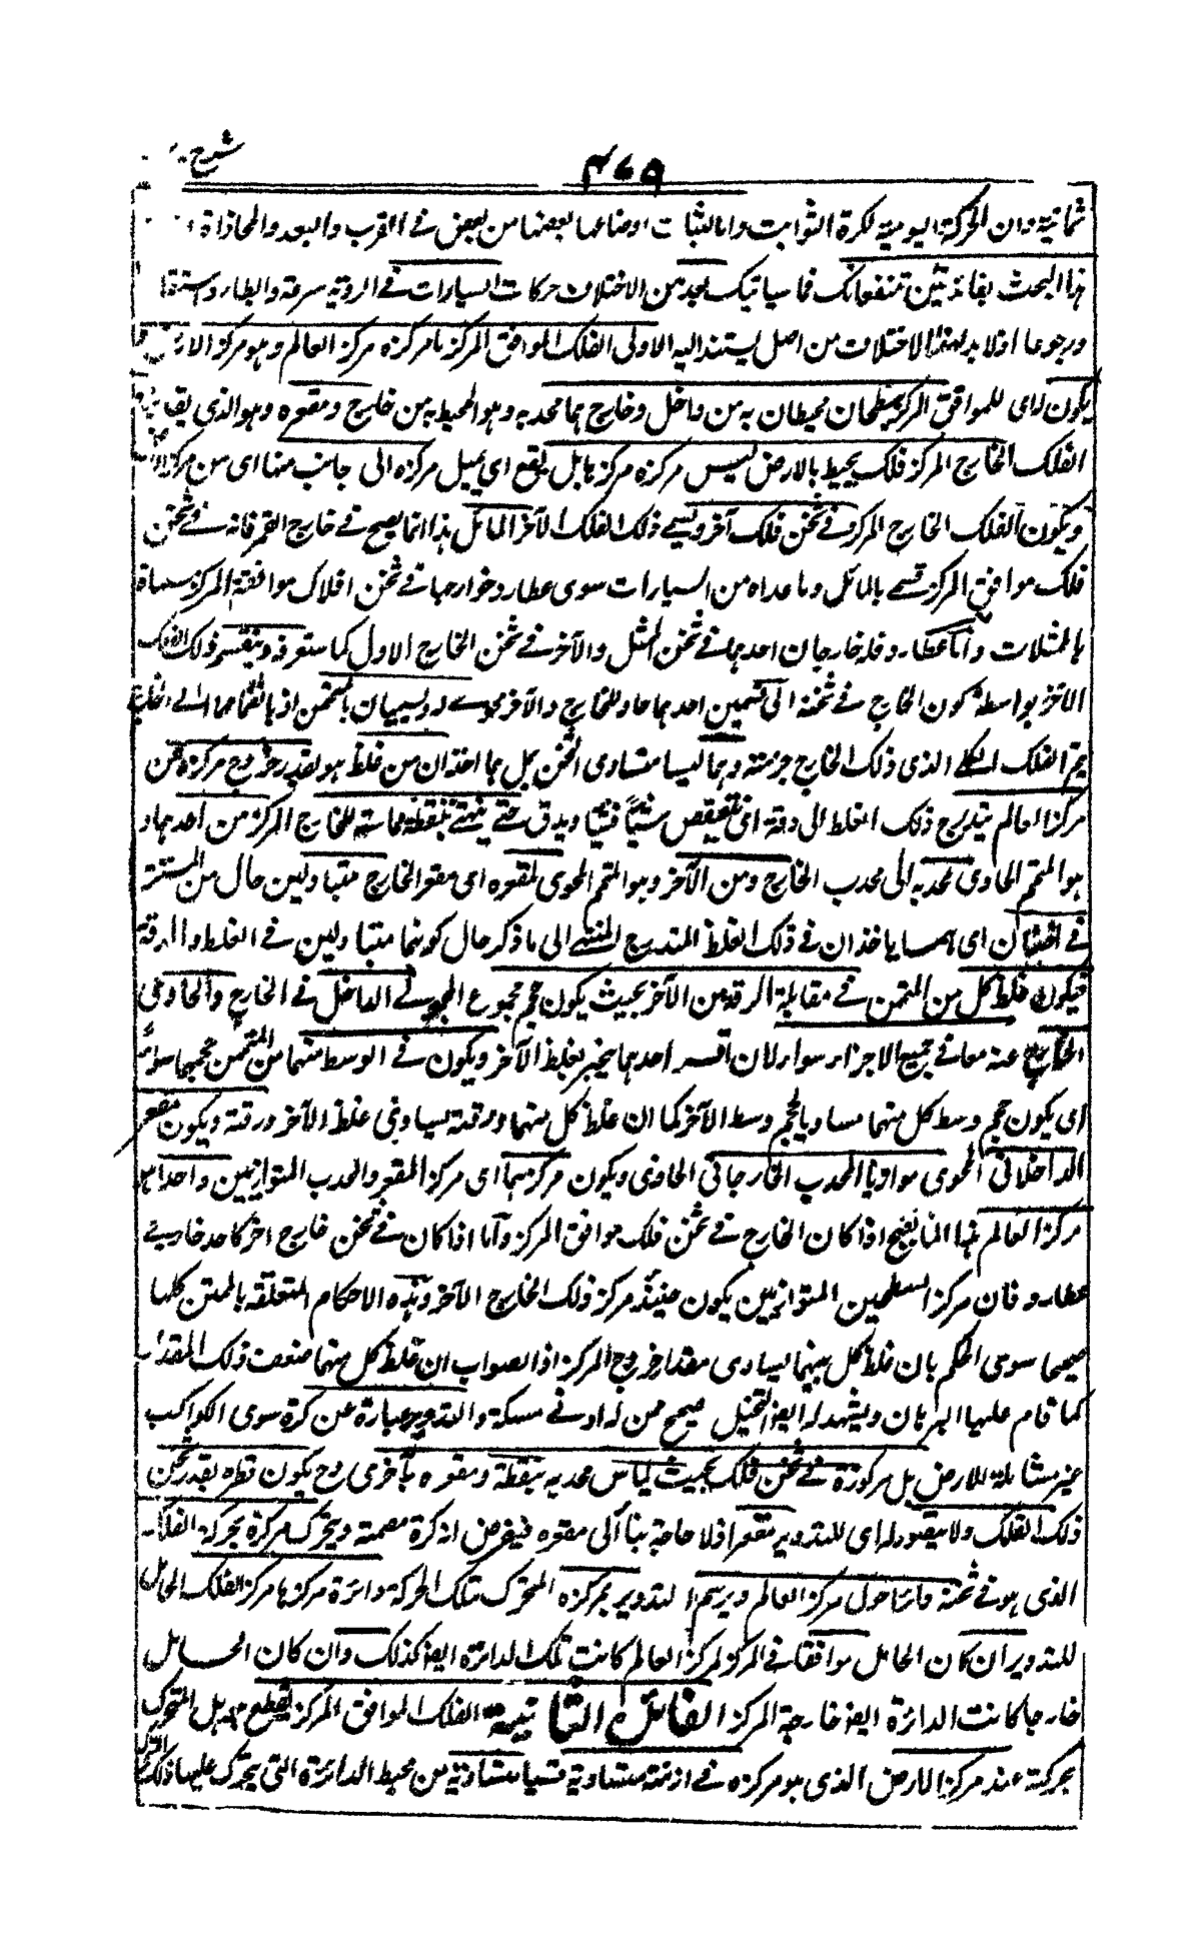 شرح
٤٦٩
ثمانية وان الحركة اليومية لكرة الثوابت واما لثبات اوضاعها بعضها من بعض فى القرب والبعد والمحاذاة
هذا البحث بفائدتين تنفعانك فيما سياتيك بعد من الاختلاف حركات السيارات فى الروية سرعة والبطاء واستقا
ورجوعا اذ لا بد لهذا الاختلاف من اصل يستند اليه الاولى الفلك الموافق المركز ما مركزه مركز العالم وهو مركز الارض
يكون له اى للموافق المركز سطحان محيطان به من داخل وخارج هما محدبه وهو المحيط به من خارج ومقعره وهو الذى
الفلك الخارج المركز فلك يحيط بالارض ليس مركزه مركزها بل يقع اى يميل مركزه الى جانب منها اى من مركز
ويكون الفلك الخارج المركز فى ثخن فلك آخر ويسمى ذلك الفلك الآخر المائل هذا انما يصح فى خارج القمر فانه فى ثخن
فلك موافق المركز تسمى بالمائل وما عداه من السيارات سوى عطارد خوارجها فى ثخن افلاك موافقة المركز مسماة
بالممثلات واما عطارد فله خارجان احدهما فى ثخن الممثل والآخر فى ثخن الخارج الاول كما ستعرفه وينقسم ذلك الفلك
الآخر بواسطة كون الخارج فى ثخنه الى قسمين احدهما حاو للخارج والآخر محوى له ويسميان بالمتممين اذ بانضمامهما الى الخارج
يتم الفلك الكلى الذى ذلك الخارج جزءمنه وهما ليسا متساوى الثخن بل هما اخذان من غلظ هو بقدر خروج مركزه عن
مركز العالم يتدرج ذلك الغلظ الى دقة اى ينتقص شيئا فشيئا ويدق حتى ينتهى بنقطة مماسة للخارج المركز من احدهما و
هو المتمم الحاوى لمحدبه الى محدب الخارج ومن الآخر وهو المتمم المحوى لمقعره اى مقعر الخارج متبادلين حال من المستتر
فى اخذان اى هما ياخذان فى ذلك الغلظ المتدرج المنتهى الى ما ذكر حال كونهما متبادلين فى الغلظ والرقة
فيكون غلظ كل من المتممين فى مقابلة الرقة من الآخر بحيث يكون حجم مجموع المحوى الداخل فى الخارج والحاوى
الخارج عنه معا فى جميع الاجزاء سواء لان انقسر احدهما يجبر بغلظ الآخر ويكون فى الوسط منهما من المتممين حجمهما سواء
اى يكون حجم وسط كل منهما مساويا لحجم وسط الآخر كما ان غلظ كل منهما ورقته يساوى غلظ الآخر ورقته ويكون مقعر
الداخلانى المحوى موازيا لمحدب الخارجانى الحاوى ويكون مركزهما اى مركز المقعر والمحدب المتوازيين واحدا هو
مركز العالم هذا انما يصح اذا كان الخارج فى ثخن فلك موافق المركز واما اذا كان فى ثخن خارج آخر كاحد خارجى
عطارد فان مركز السطحين المتوازيين يكون حينئذ مركز ذلك الخارج الآخر وهذه الاحكام المتعلقة بالمتممين كلها
صحيحة سوى الحكم بان غلظ كل منهما يساوى مقدار خروج المركز اذ الصواب ان غلظ كل منهما ضعف ذلك المقدار
كما قام عليها البرهان ويشهد له ايضا التخيل صحيح ممن له ادنى مسكة والتدوير عبارة عن كرة سوى الكواكب
غير شاملة للارض بل مركوزة فى ثخن فلك بحيث يماس محدبه بنقطة ومقعره باخرى وح يكون قطره بقدر ثخن
ذلك الفلك ولا يتصور له اى للتدوير مقعر اذ لا حاجة بنا الى مقعره فيفرض انه كرة مصمتة ويتحرك مركزه بحركة الفلك
الذى هو فى ثخنه دائما حول مركز العالم ويرسم التدوير بمركزه المتحرك بتلك الحركة دائرة مركزها مركز الفلك الحامل
للتدوير ان كان الحامل موافقا فى المركز لمركز العالم كانت تلك الدائرة ايضا كذلك وان كان الحامل
خارجا كانت الدائرة ايضا خارجة المركز الفائدة الثانية الفلك الموافق المركز يقطع بل المتحرك
بحركته عند مركز الارض الذى هو مركزه فى ازمنة متساوية قسيا متساوية من محيط الدائرة التى يتحرك عليها ذلك